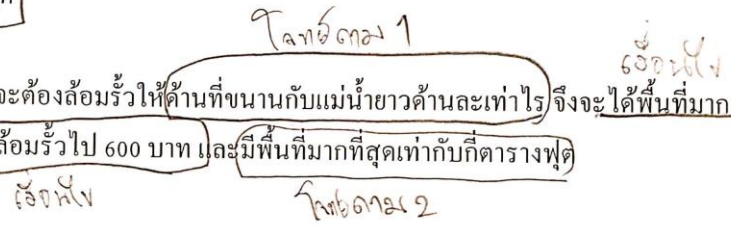 โจทย์ถาม 1
เงื่อนไข
จะต้องล้อมรั้วให้ด้านที่ขนานกับแม่น้ำยาวด้านละเท่าไร จึงจะได้พื้นที่มาก
ล้อมรั้วไป 600 บาท และมีพื้นที่มากที่สุดเท่ากับกี่ตารางฟุต
เงื่อนไข โจทย์ถาม 2